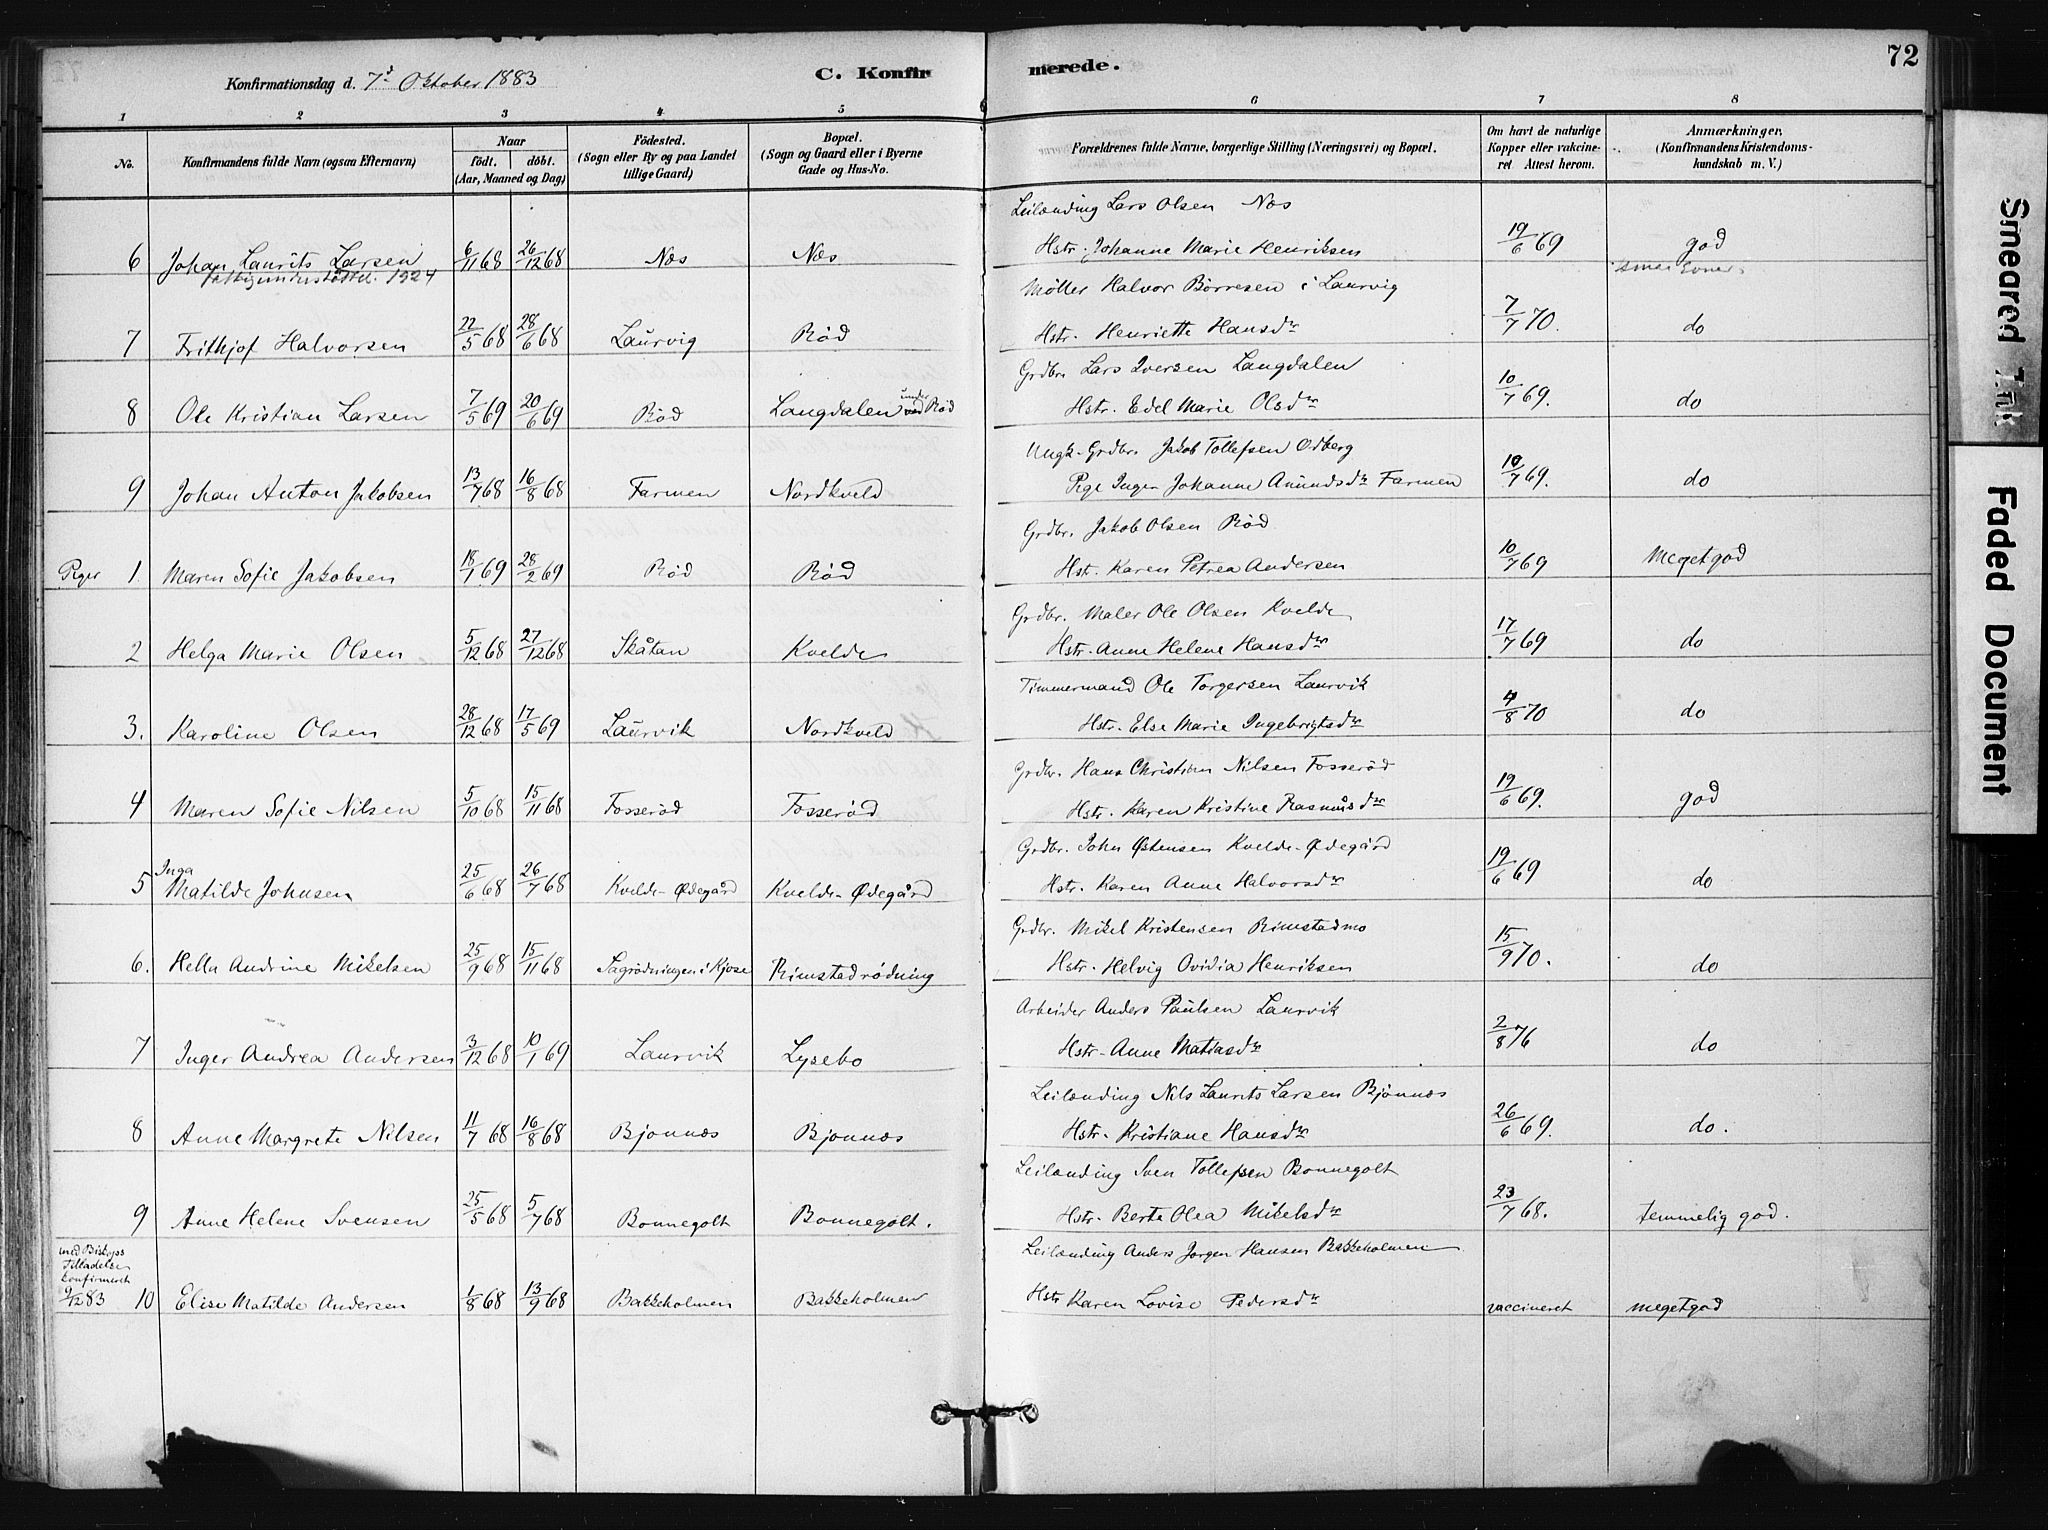 72
Konfirmationsdag d. 7d Oktober 1883 C. Konfirmerede.
1 2 3 4 5 6 7 8
No. Konfirmandens fulde Navn (ogsaa Efternavn) Naar födt. döbt. (Aar, Maaned og Dag) Födested. (Sogn eller By og paa Landet tillige Gaard) Bopæl. (Sogn og Gaard eller i Byerne Gade og Hus-No. Forældrenes fulde Navne, borgerlige Stilling (Næringsvei) og Bopæl. Om havt de naturlige Kopper eller vakcineret Attest herom. Anmærkninger. (Konfirmandens Kristendomskundskab m. V.)
Leilænding Lars Olsen Næs
6 Johan Laurits Larsen 6/11 68 26/12 68 Næs Næs Hstr. Johanne Marie Henriksen 19/6 69 god
1924 smaa Evner
Møller Halvor Børresen i Laurvig
7 Frithjof Halvorsen 22/5 68 28/6 68 Laurvig Rød Hstr. Henriette Hansdr 7/7 70. do
Grdbr. Lars Iversen Langdalen
8 Ole Kristian Larsen 7/5 69 20/6 69 Rød Langdalen under Rød Hstr. Edel Marie Olsdr 10/7 69. do
Ungk. Grdbr. Jakob Tollefsen Odberg
9 Johan Anton Jakobsen 13/7 68 16/8 68 Farmen Nordkveld Pige Inger Johanne Amundsdr Farmen 10/7 69. do
Grdbr. Jakob Olsen Rød
Piger 1. Maren Sofie Jakobsen 18/1 69 28/2 69 Rød Rød Hstr. Karen Petrea Andersen 10/7 69 Megetgod
Grdbr. Maler Ole Olsen Kvelde
2 Helga Marie Olsen 5/12 68 27/12 68 Skåtan Kvelde Hstr. Anne Helene Hansdr 17/7 69 do
Timmermand Ole Torgersen Laurvik
3. Karoline Olsen 28/12 68 17/5 69 Laurvik Nordkveld Hstr. Else Marie Ingebrigtsdr 4/8 70 do
Grdbr. Hans Christian Nilsen Fosserød
4 Maren Sofie Nilsen 5/10 68 15/11 68 Fosserød Fosserød Hstr. Karen Kristine Rasmusdr 19/6 69. god
Grdbr. John Østensen Kvelde-Ødegård
5 Inga Matilde Johnsen 25/6 68 26/7 68 Kvelde-Ødegård Kvelde-Ødegård Hstr. Karen Anne Halvorsdr 19/6 69 do
Grdbr. Mikel Kristensen Rimstadmo
6. Hella Andrine Mikelsen 25/9 68 15/11 68 Sagrödningen i Kjose Rimstadrødning Hstr. Helvig Ovidia Henriksen 15/9 70. do
Arbeider Anders Paulsen Laurvik
7 Inger Andrea Andersen 3/12 68 10/1 69 Laurvik Lysebo Hstr. Anne Matiasdr 2/8 76 do
Leilænding Nils Laurits Larsen Bjønnæs
8 Anne Margrete Nilsen 11/7 68 16/8 68 Bjonnæs Bjonnæs Hstr. Kristiane Hansdr 26/6 69. do.
Leilænding Sven Tollefsen Bonnegolt
9 Anne Helene Svensen 25/5 68 5/7 68 Bonnegolt Bonnegolt. Hstr. Berte Olea Mikelsdr 23/7 68. temmelig god.
med Biskops Tilladelse konfirmeret Leilænding Anders Jørgen Hansen Bakkeholmen
9/12 83 10 Elise Matilde Andersen 1/8 68 13/9 68 Bakkeholmen Bakkeholmen Hstr Karen Lovise Pedersdr vaccineret megetgod
Smeared Ink
Faded Document